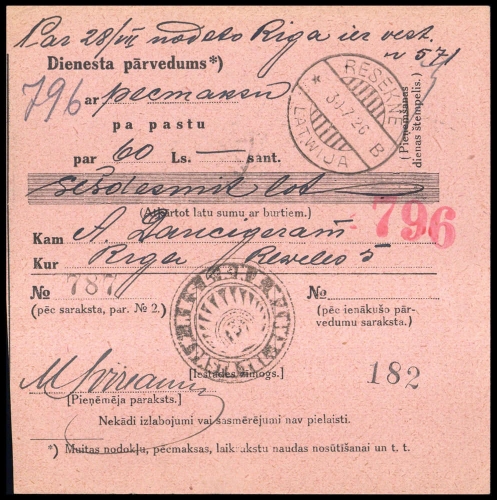 Par 28/VII nodeto Riga ier vest.
n 571
Dienesta pārvedums*)
796 ar pecmaksu
pa pastu
par 60 Ls. — sant.
sešdesmit lat
(Atkārtot latu sumu ar burtiem.)
796
Kam A. Dancigeram
Kur Riga Reveles 5
№ 787 №
(pēc saraksta, par. № 2.) (pēc ienākušo pārvedumu saraksta.)
RESEKNE
30.7.26
LATWIJA B
(Pieņemšanas dienas štempelis.)
[Iestādes zīmogs.]
182
[Pieņēmēja paraksts.]
Nekādi izlabojumi vai sasmērējumi nav pielaisti.
*) Muitas nodokļu, pēcmaksas, laikrakstu naudas nosūtīšanai un t. t.